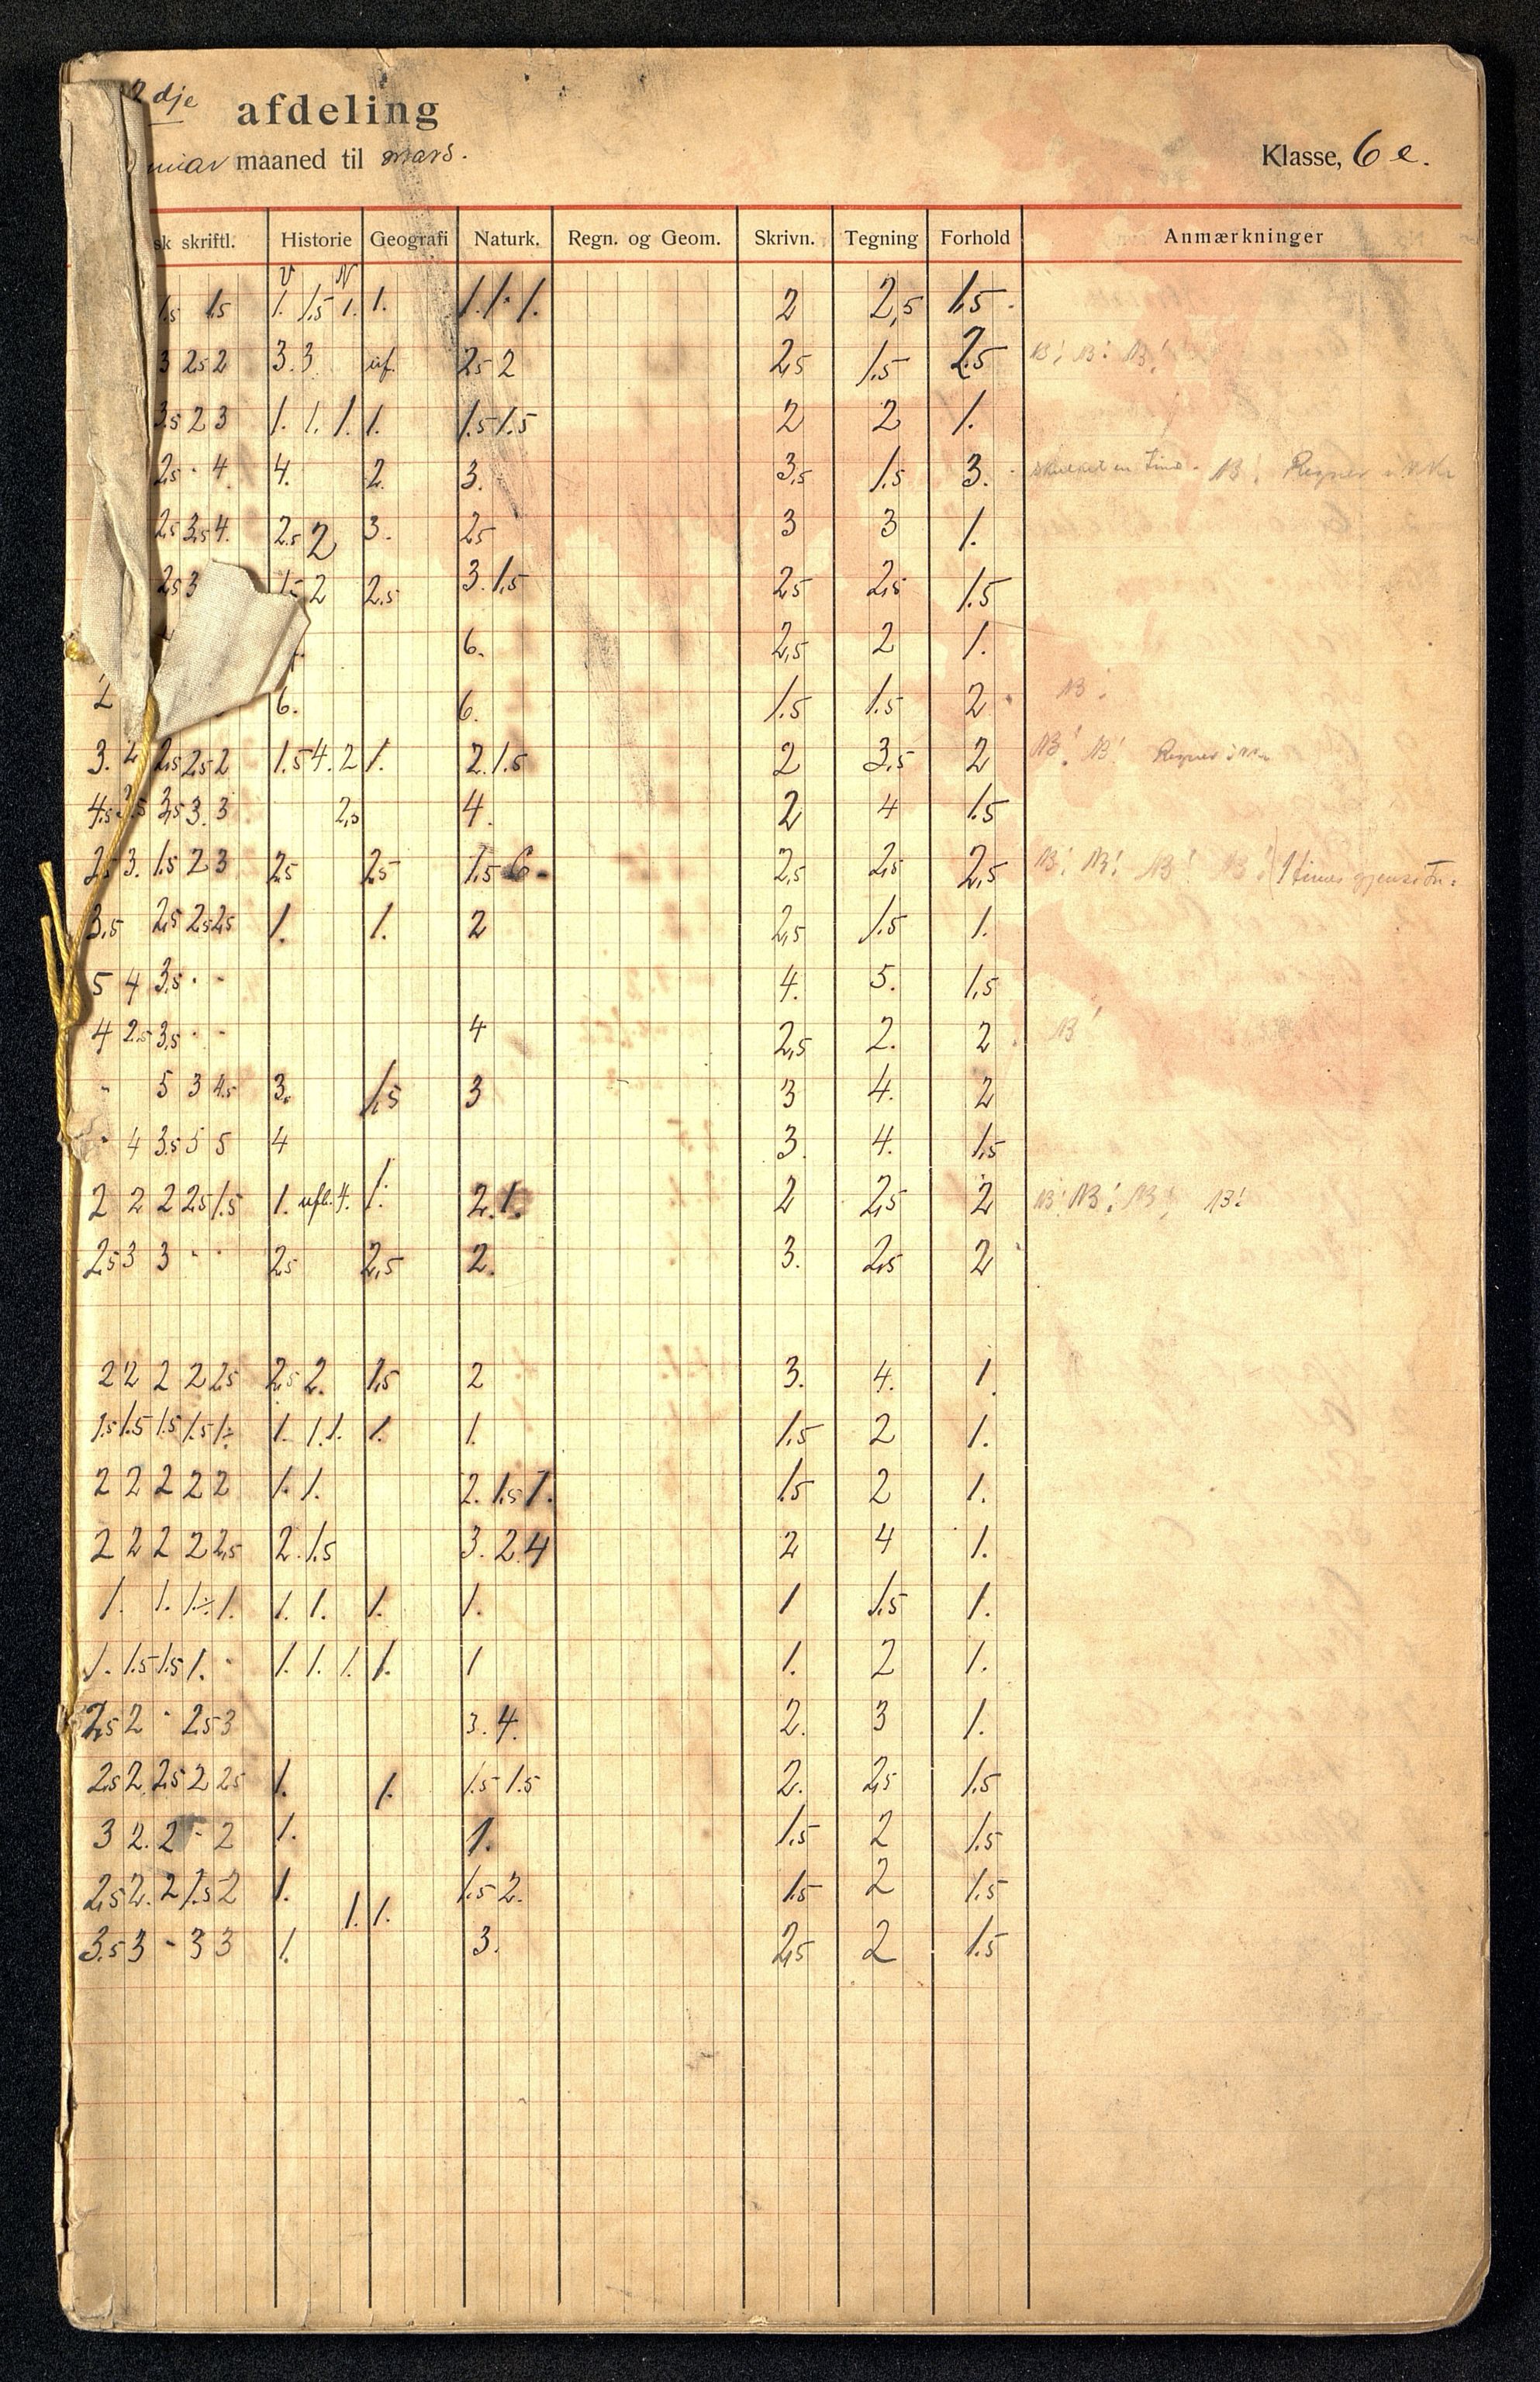 dje afdeling
maaned til mars. Klasse, 6 e.
sk skriftl. Historie Geografi Naturk. Regn. og Geom. Skrivn. Tegning Forhold Anmærkninger
V N
1.5 1.5 1. 1.5 1. 1. 1. 1. 1. 2 2,5 1.5
3 2.5 2 3. 3 uf. 2.5 2 2.5 1.5 2.5 NB! NB! NB!
3.5 2 3 1. 1. 1. 1. 1.5 1.5 2 2 1.
2.5 - 4. 4. 2. 3. 3.5 1.5 3. NB!
2.5 3.5 4. 2.5 2 3. 2.5 3 3 1.
2.5 3 2 2.5 3. 1.5 2.5 2.5 1.5
6. 2.5 2 1.
6. 6. 1.5 1.5 2 NB!
3. 2.5 2.5 2 1.5 4. 2 1. 2. 1.5 2 3.5 2 NB! NB! Regner
4.5 3.5 3. 3 2.5 4. 2 4 1.5
2.5 3. 1.5 2 3 2.5 2.5 1.5 6. 2,5 2.5 2,5 NB! NB! NB! NB! 1 times
3.5 2.5 2.5 2.5 1. 1. 2 2,5 1.5 1.
5 4 3.5 - - 4. 5. 1.5
4 2.5 3.5 - - 4 2,5 2. 2 NB!
- 5 3 4.5 3. 1.5 3 3 4. 2
- 4 3.5 5 5 4 3. 4. 1.5
2 2 2 2.5 1.5 1. 4. 1. 2. 1. 2 2.5 2 NB! NB! NB! NB!
2.5 3 3 - - 2.5 2,5 2. 3. 2.5 2
2 2 2 2 2.5 2.5 2. 1.5 2 3. 4. 1.
1.5 1.5 1.5 1.5 1÷ 1. 1. 1. 1. 1. 1.5 2 1.
2 2 2 2 2 1. 1. 2. 1.5 1. 1.5 2 1.
2 2 2 2 2.5 2. 1.5 3. 2. 4 2 4 1.
1. 1. 1÷ 1. 1. 1. 1. 1. 1 1.5 1.
1. 1.5 1.5 1. - 1. 1. 1. 1. 1 1. 2 1.
2.5 2 - 2.5 3 3. 4. 2. 3 1.
2.5 2 2.5 2 2.5 1. 1. 1.5 1.5 2. 2.5 1.5
3 2. 2 - 2 1. 1. 1.5 2 1.5
2.5 2. 2 1.5 2 1. 1. 1. 1.5 2. 1.5 2 1.5
3.5 3 - 3 3 1. 3. 2.5 2 1.5